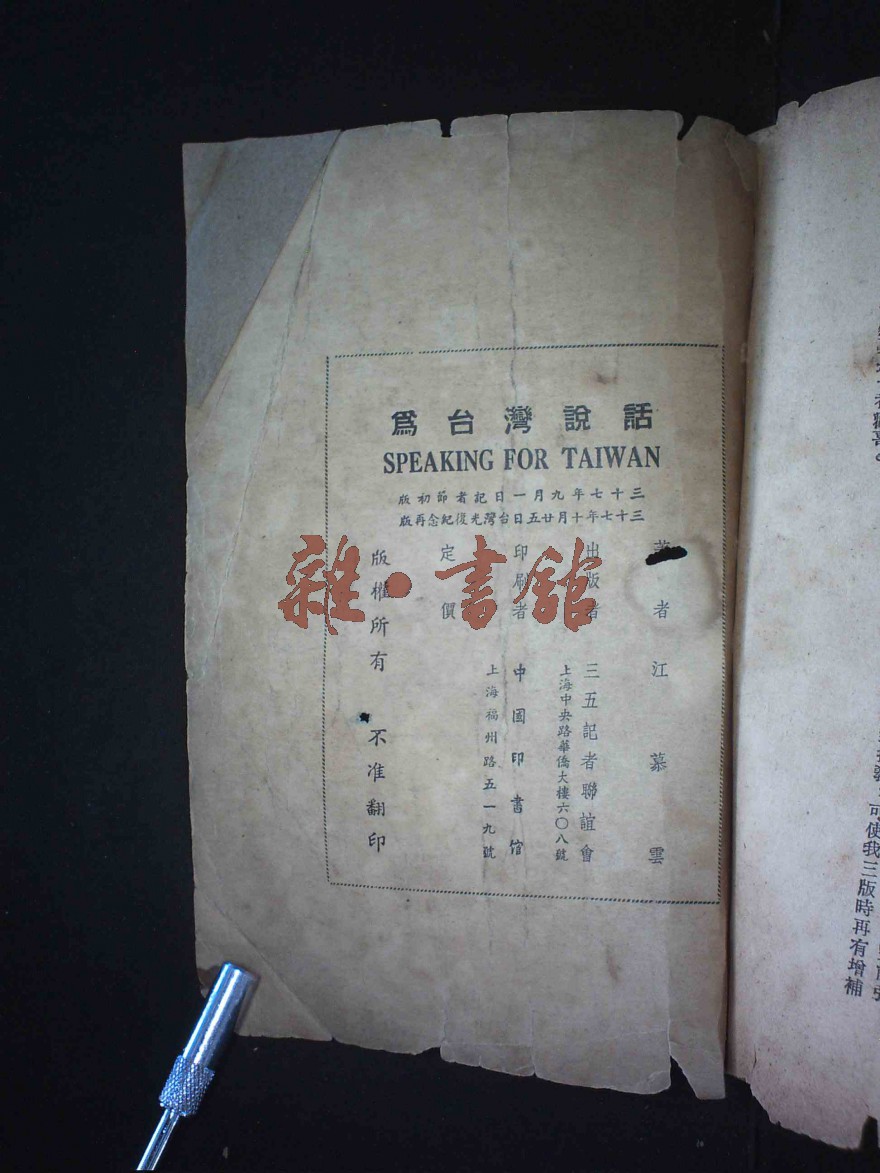 爲台灣說話
SPEAKING FOR TAIWAN
三十七年九月一日記者節初版
三十七年十月廿五日台灣光復紀念再版
著者 江慕雲
出版者 三五記者聯誼會
上海中央路華僑大樓六〇八號
印刷者 中國印書館
上海福州路五一九號
定價
版權所有 不准翻印
雜·書館
可使我三版時再有增補